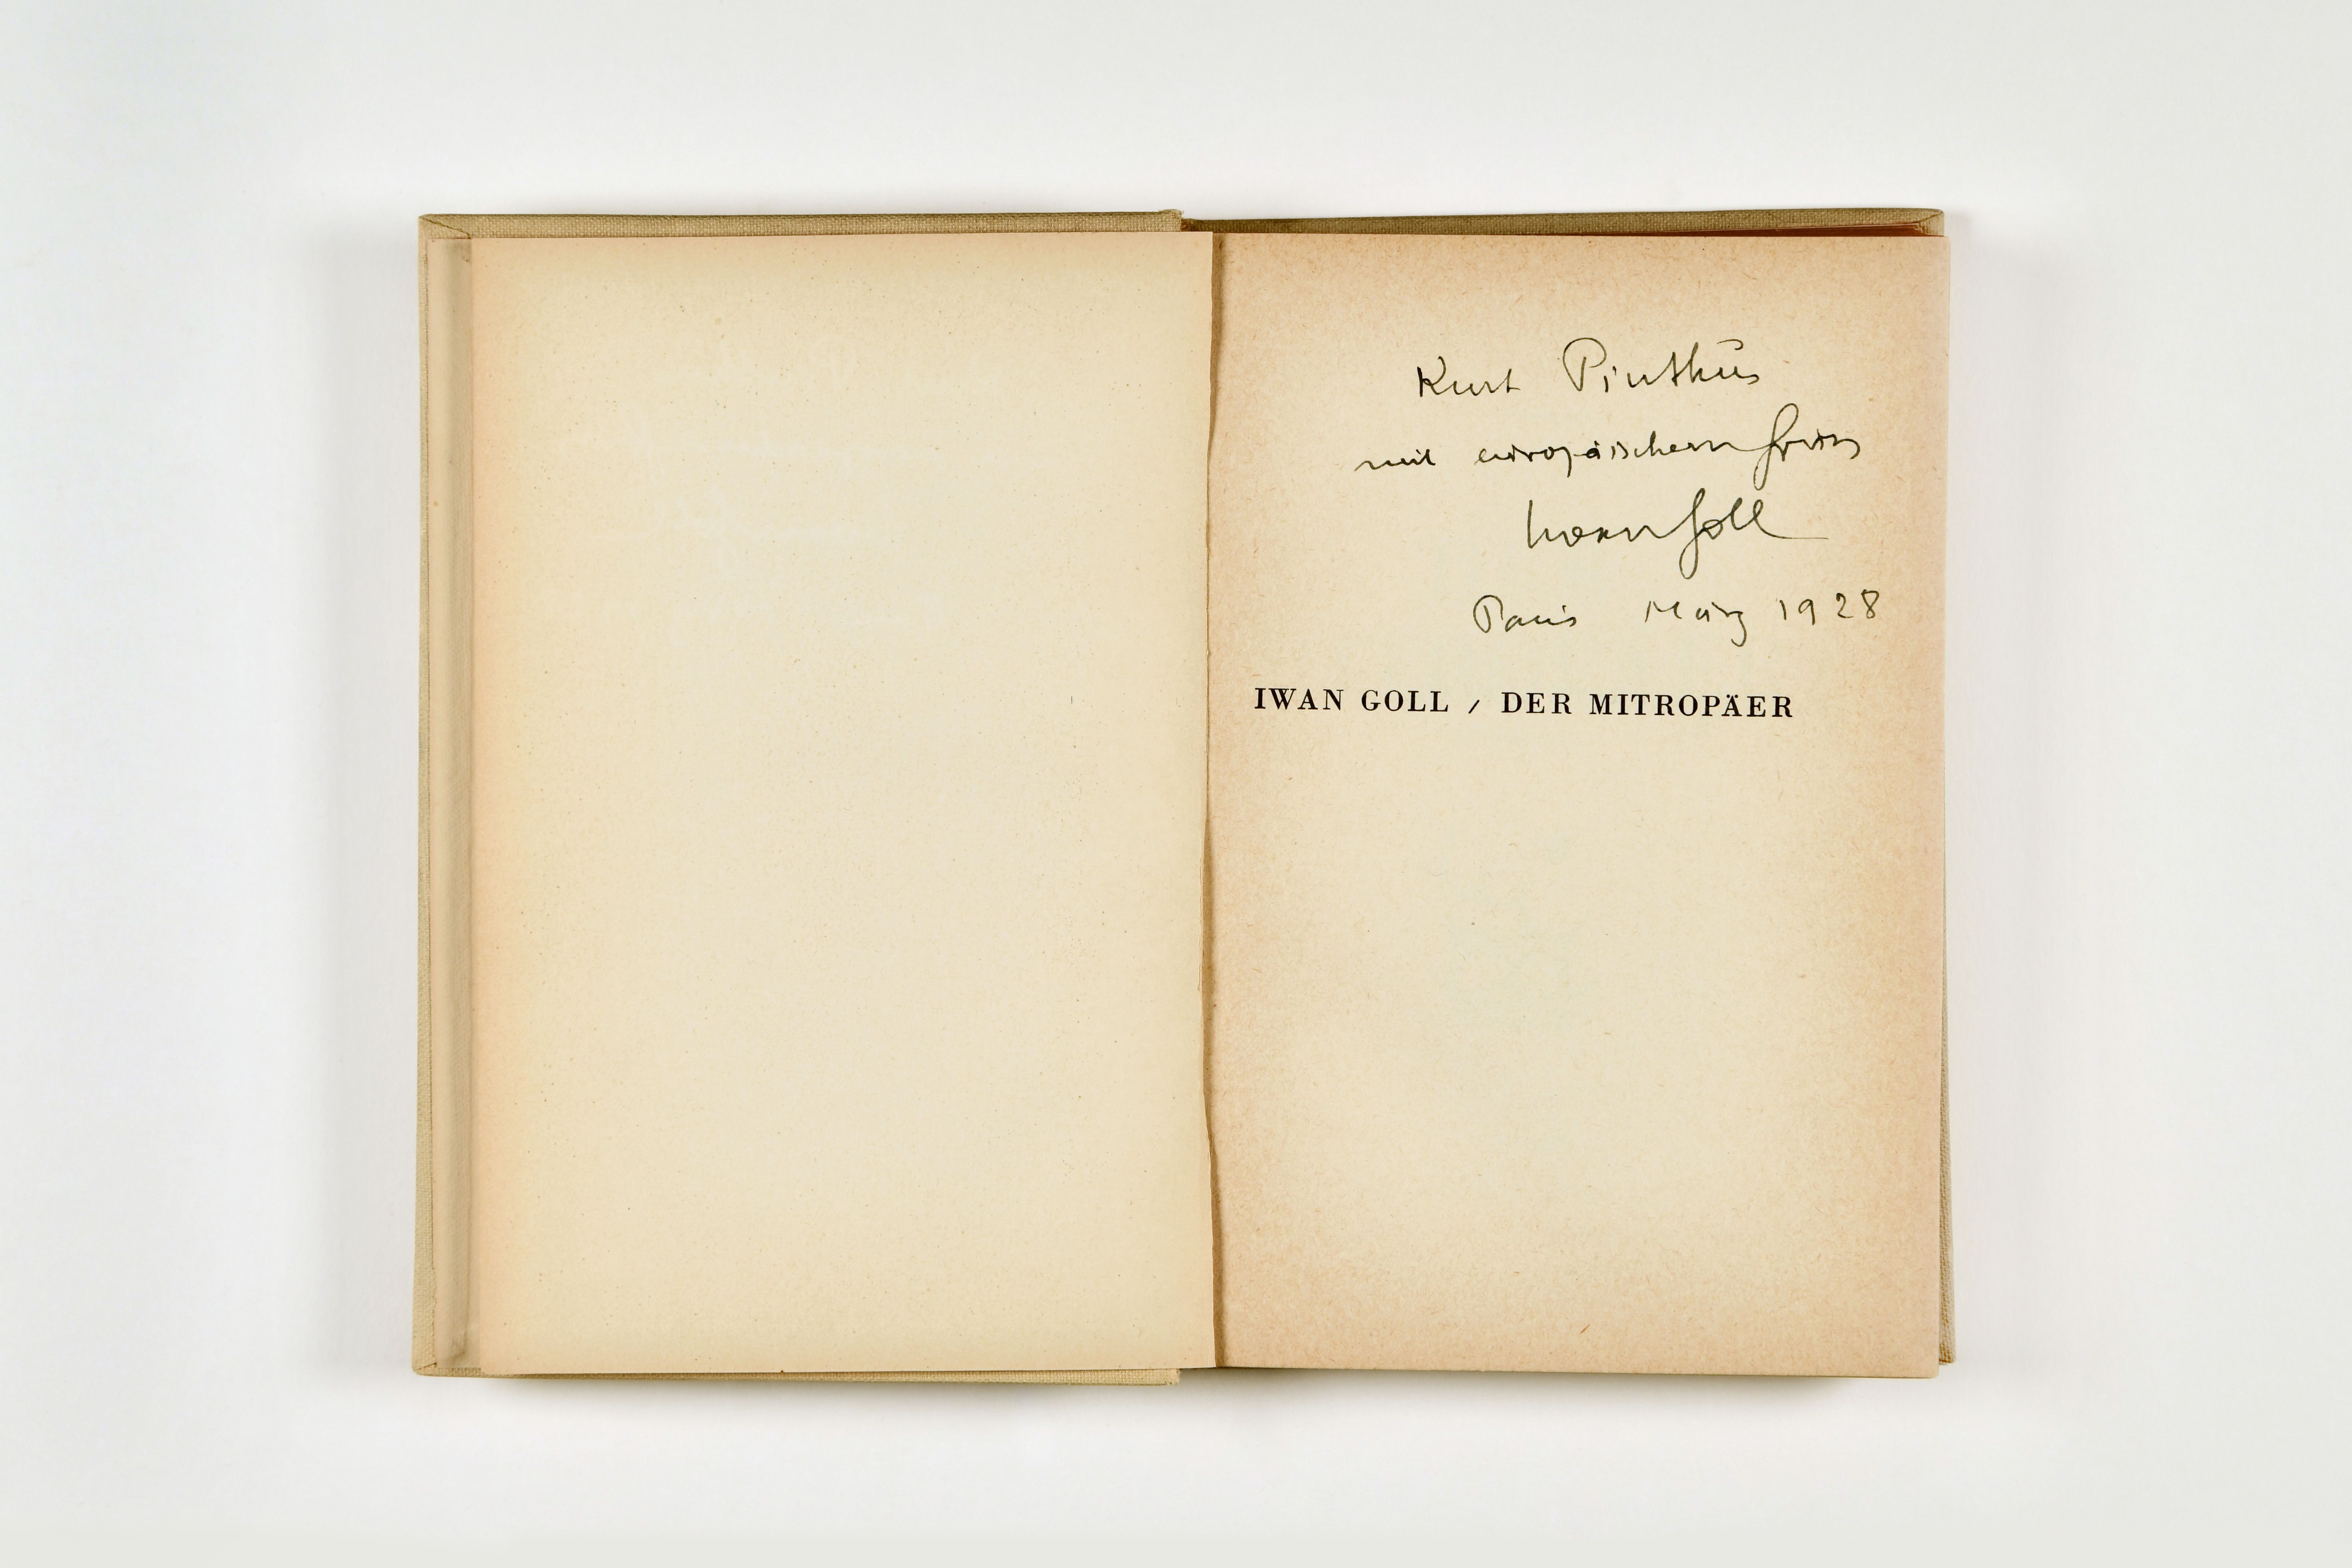 Kurt Pinthus
mit europäischem Gruss
Iwan Goll
Paris März 1928
IWAN GOLL / DER MITROPÄER